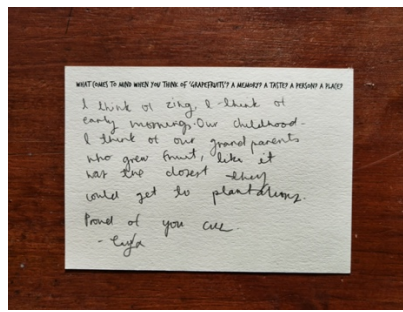 WHAT COMES TO MIND WHEN YOU THINK OF 'GRAPEFRUITS'? A MEMORY? A TASTE? A PERSON? A PLACE?
I think of zing, I think of
early mornings. Our childhood.
I think of our grandparents
who grew fruit, like it
was the closest they
could get to plantations.
Proud of you cuz
-